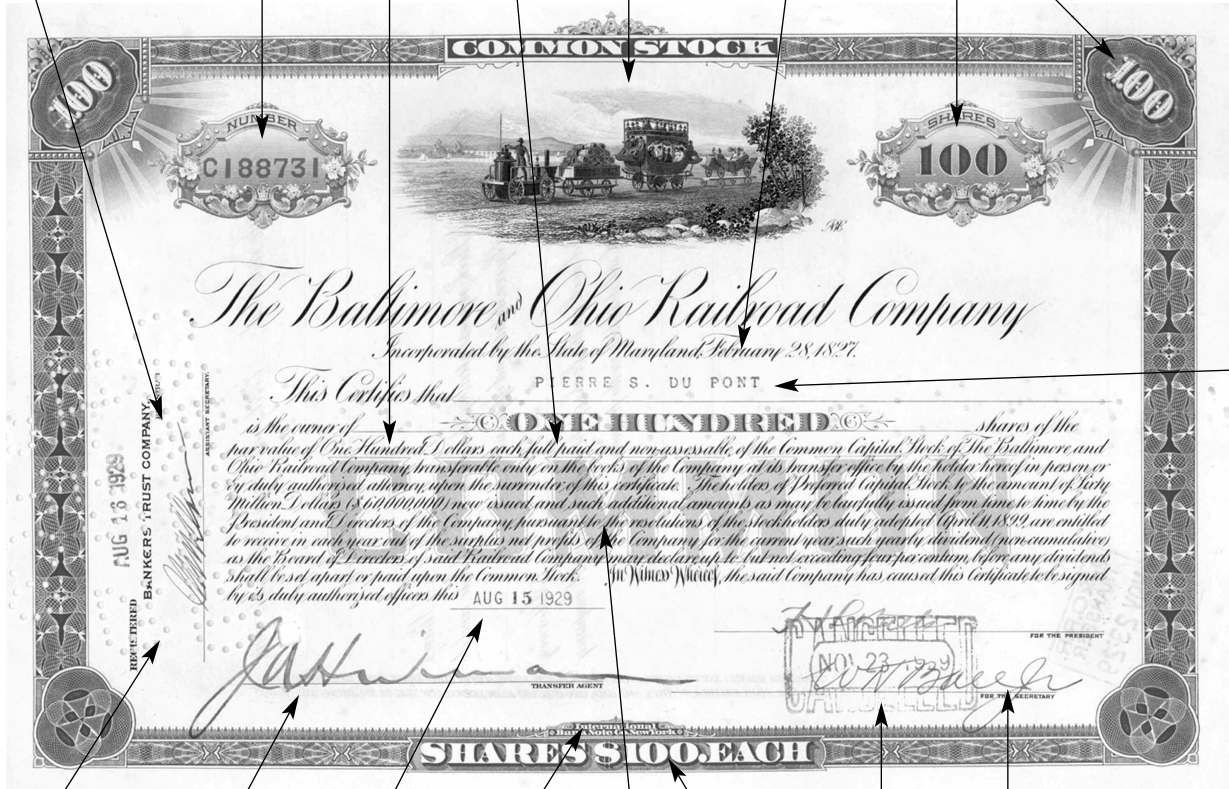 COMMON STOCK
100
100
NUMBER
C188731
SHARES
100
The Baltimore and Ohio Railroad Company
Incorporated by the State of Maryland, February 28, 1827.
This Certifies that PIERRE S. DU PONT
is the owner of ONE HUNDRED shares of the
par value of One Hundred Dollars each full paid and non-assessable, of the Common Capital Stock of The Baltimore and
Ohio Railroad Company, transferable only on the books of the Company at its transfer office by the holder hereof in person or
by duly authorized attorney, upon the surrender of this certificate. The holders of Preferred Capital Stock to the amount of Sixty
Million Dollars ($60,000,000) now issued and such additional amounts as may be lawfully issued from time to time by the
President and Directors of the Company pursuant to the resolutions of the stockholders duly adopted April 11, 1899, are entitled
to receive in each year out of the surplus net profits of the Company for the current year such yearly dividend (non-cumulative)
as the Board of Directors of said Railroad Company may declare up to but not exceeding four per centum, before any dividends
shall be set apart or paid upon the Common Stock. In Witness Whereof, the said Company has caused this Certificate to be signed
by its duly authorized officers this AUG 15 1929
COMMON
REGISTERED
AUG 16 1929
BANKERS TRUST COMPANY,
ASSISTANT SECRETARY.
TRANSFER AGENT
FOR THE PRESIDENT
CANCELLED
NOV 23 1929
CANCELLED
FOR THE SECRETARY
International
Bank Note Co. New York
SHARES $100. EACH